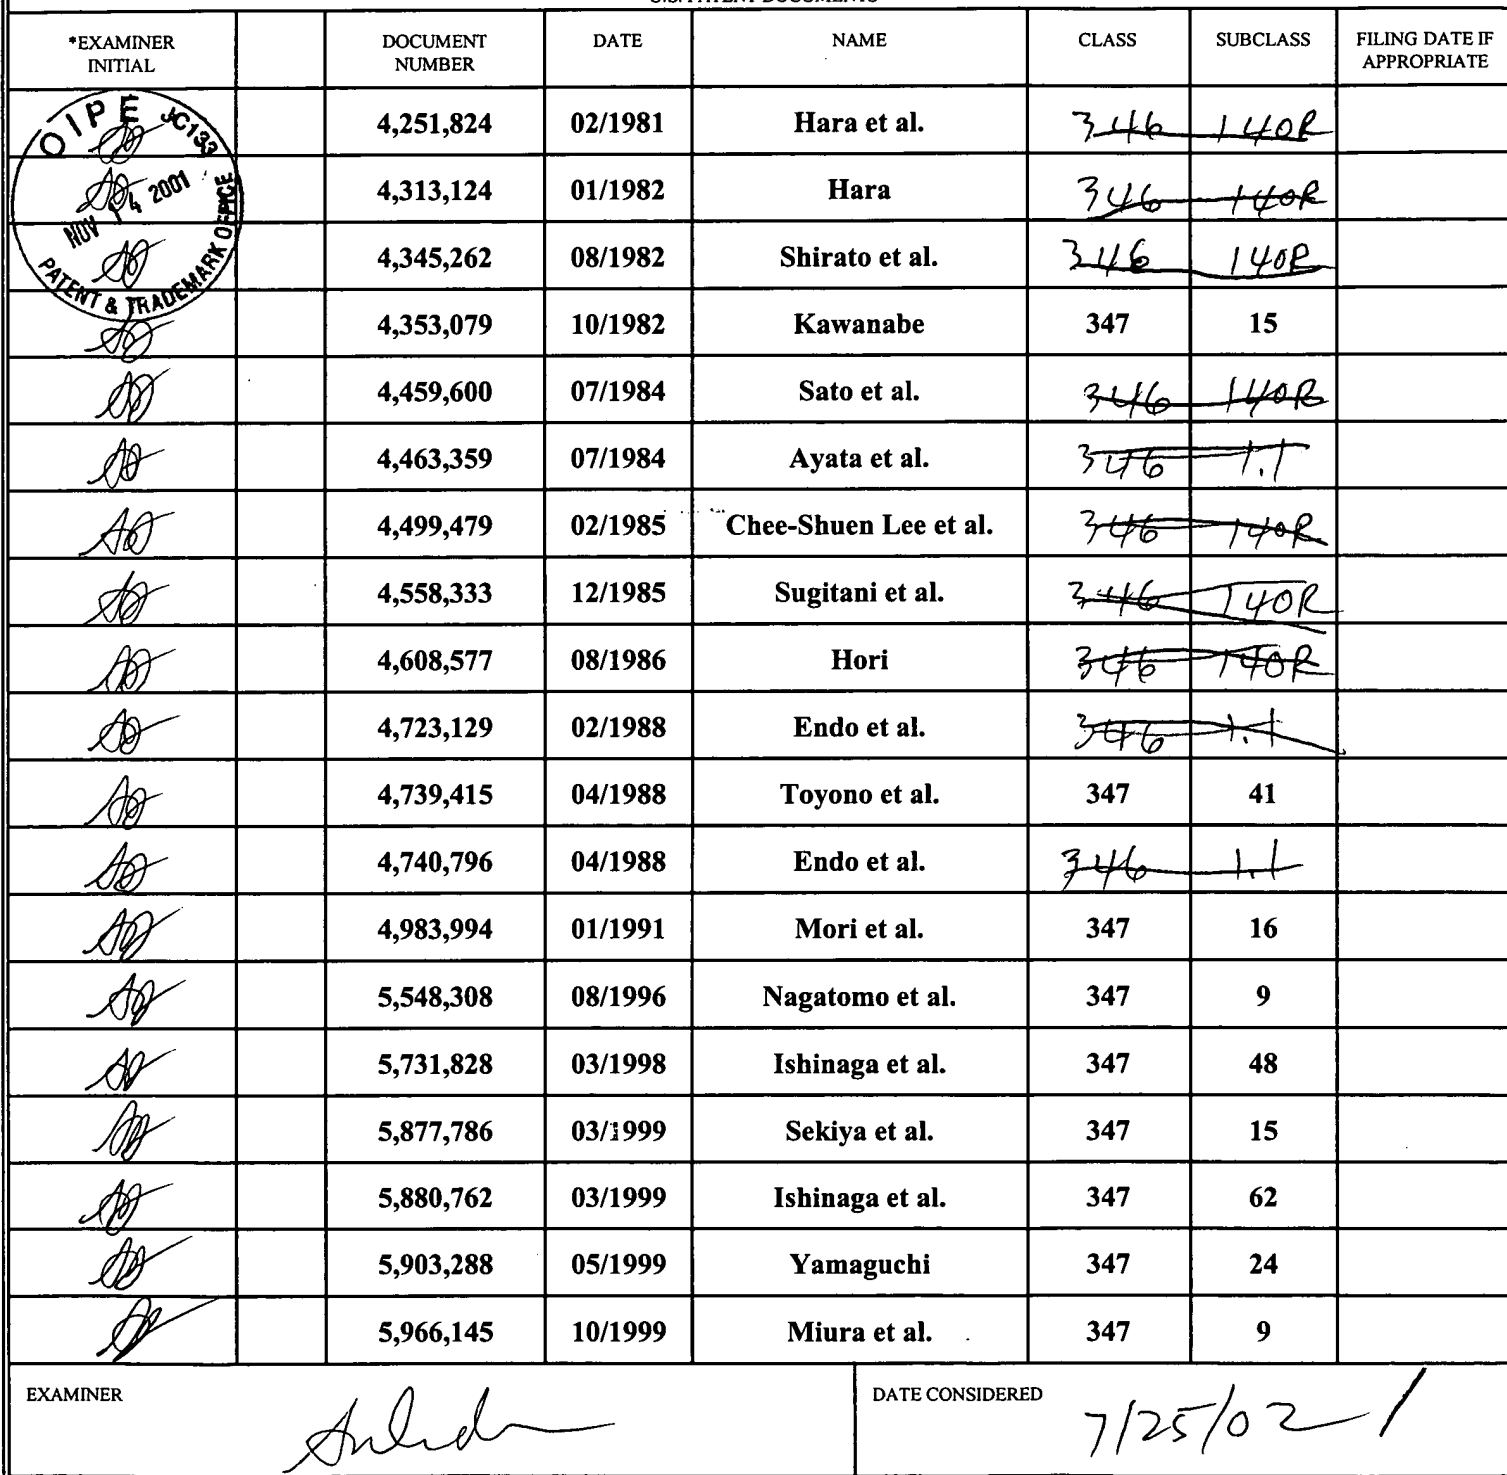 U.S. PATENT DOCUMENTS
*EXAMINER INITIAL DOCUMENT NUMBER DATE NAME CLASS SUBCLASS FILING DATE IF APPROPRIATE
OIPE JC133
NOV 14 2001
PATENT & TRADEMARK OFFICE
4,251,824 02/1981 Hara et al. 346 140R
4,313,124 01/1982 Hara 346 140R
4,345,262 08/1982 Shirato et al. 346 140R
4,353,079 10/1982 Kawanabe 347 15
4,459,600 07/1984 Sato et al. 346 140R
4,463,359 07/1984 Ayata et al. 346 1.1
4,499,479 02/1985 Chee-Shuen Lee et al. 346 140R
4,558,333 12/1985 Sugitani et al. 346 140R
4,608,577 08/1986 Hori 346 140R
4,723,129 02/1988 Endo et al. 346 1.1
4,739,415 04/1988 Toyono et al. 347 41
4,740,796 04/1988 Endo et al. 346 1.1
4,983,994 01/1991 Mori et al. 347 16
5,548,308 08/1996 Nagatomo et al. 347 9
5,731,828 03/1998 Ishinaga et al. 347 48
5,877,786 03/1999 Sekiya et al. 347 15
5,880,762 03/1999 Ishinaga et al. 347 62
5,903,288 05/1999 Yamaguchi 347 24
5,966,145 10/1999 Miura et al. 347 9
EXAMINER DATE CONSIDERED 7/25/02